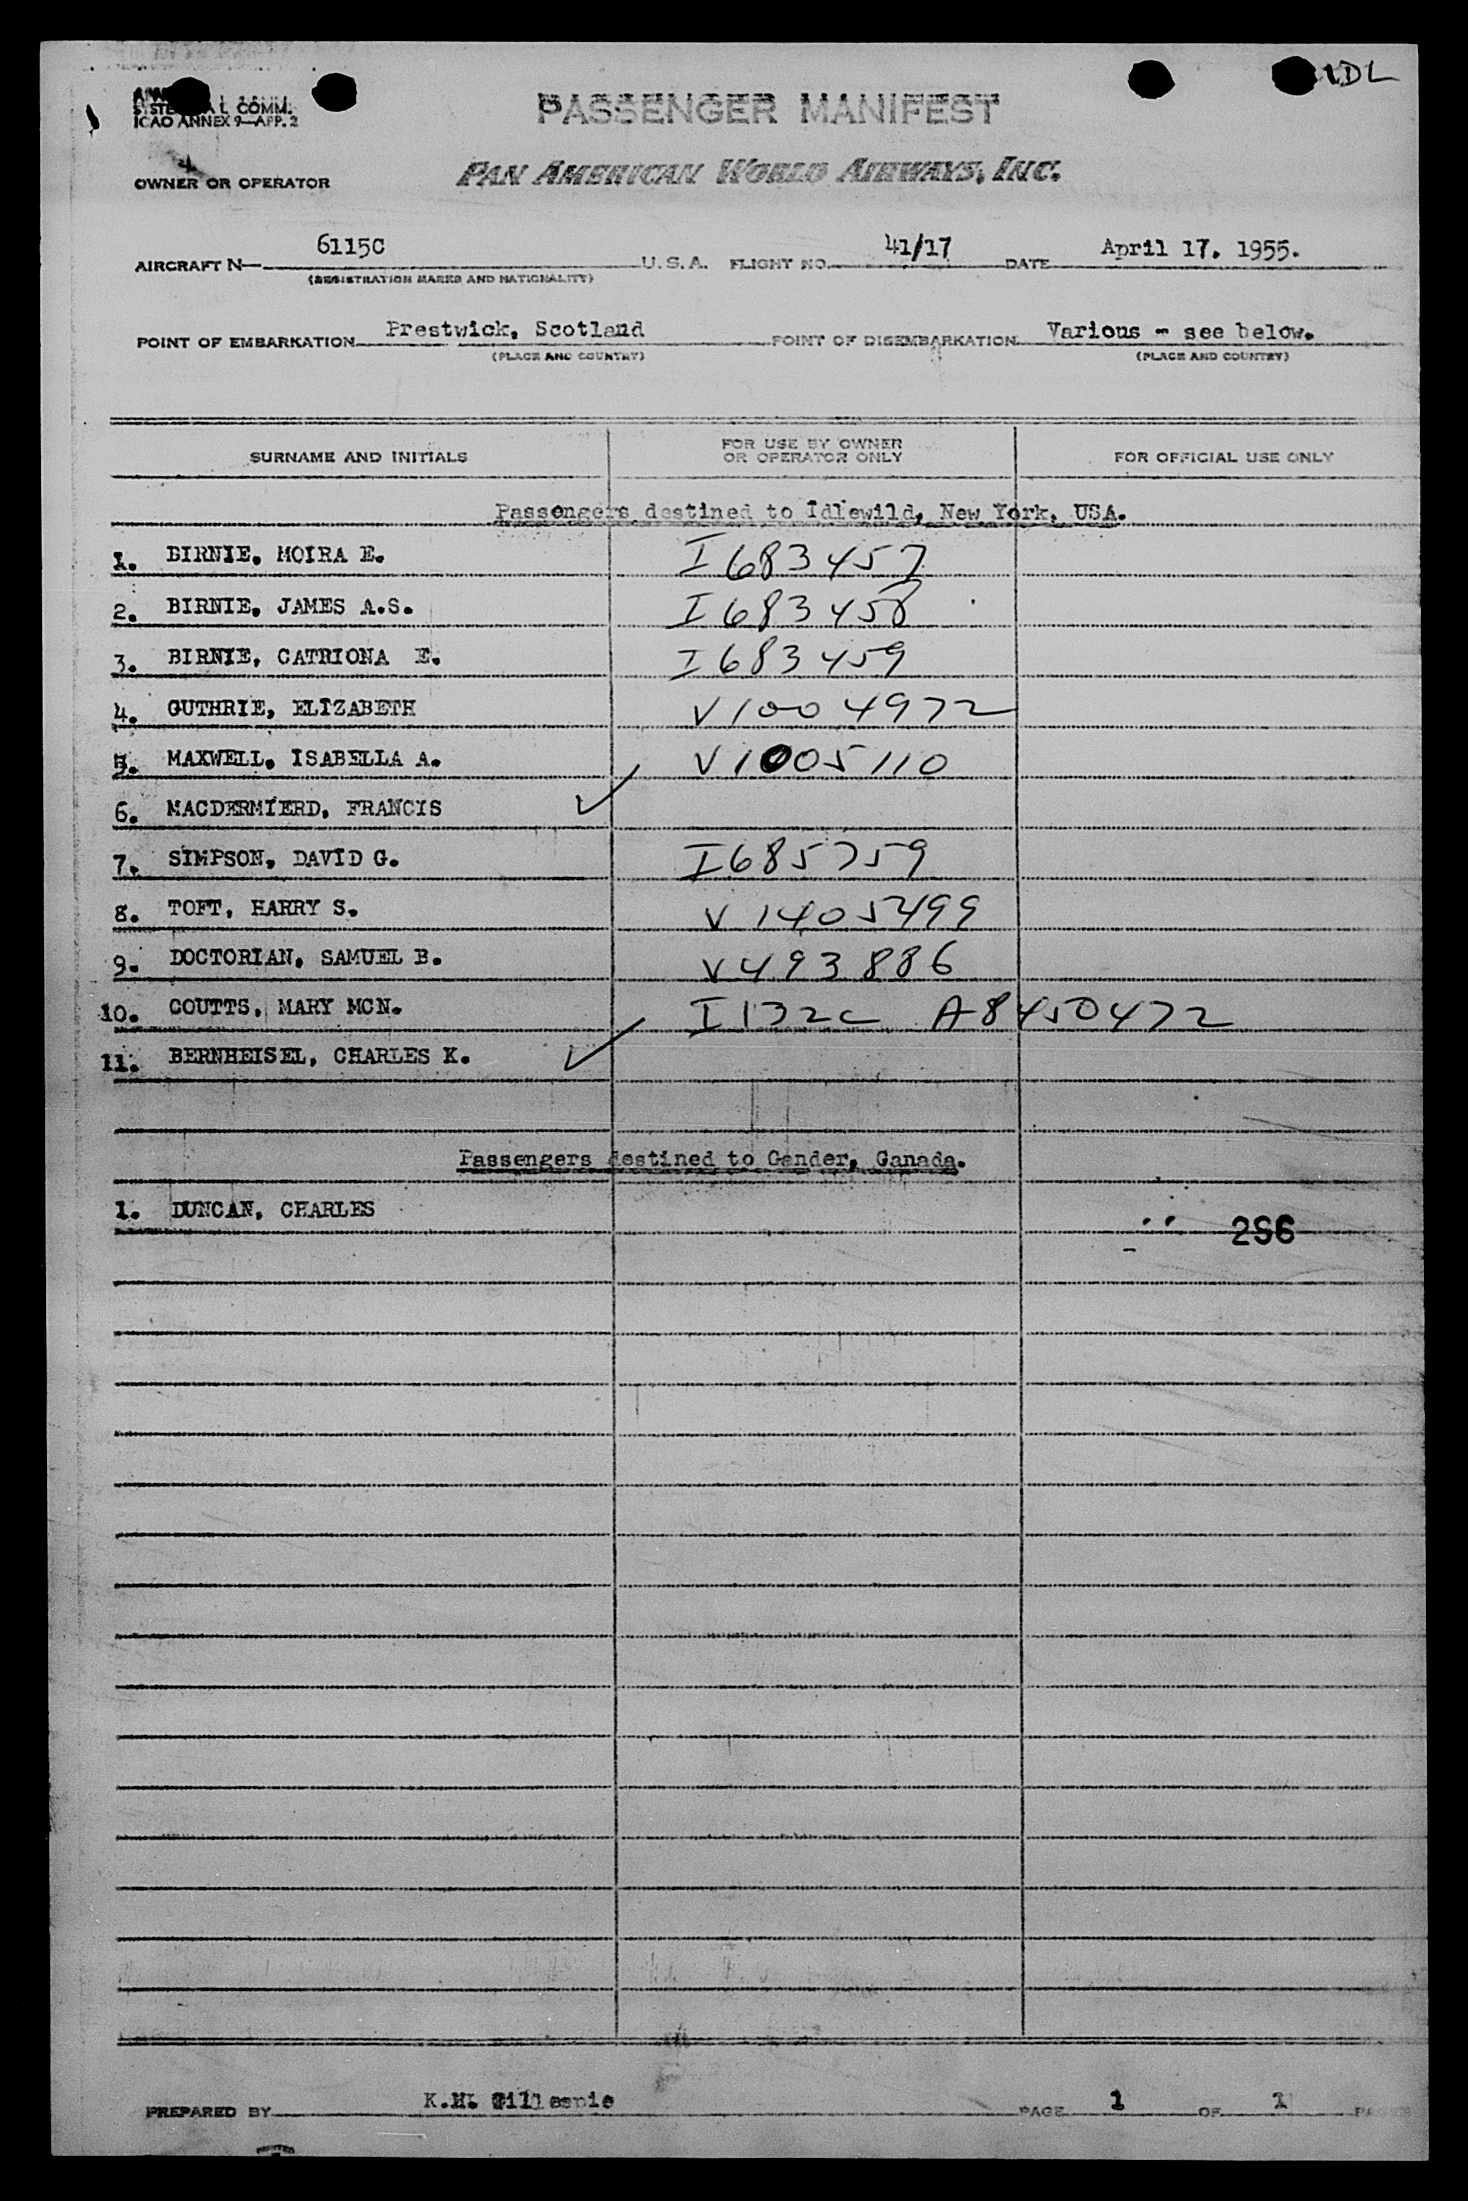 IDL
SYSTEM A L COMM.
ICAO ANNEX 9—APP. 2
PASSENGER MANIFEST
OWNER OR OPERATOR PAN AMERICAN WORLD AIRWAYS, INC.
AIRCRAFT N— 6115C U.S.A. FLIGHT NO. 41/17 DATE April 17. 1955.
(REGISTRATION MARKS AND NATIONALITY)
POINT OF EMBARKATION Prestwick, Scotland POINT OF DISEMBARKATION Various - see below.
(PLACE AND COUNTRY) (PLACE AND COUNTRY)
SURNAME AND INITIALS FOR USE BY OWNER OR OPERATOR ONLY FOR OFFICIAL USE ONLY
Passengers destined to Idlewild, New York, USA.
1. BIRNIE, MOIRA E. I 683457
2. BIRNIE, JAMES A.S. I 683458
3. BIRNIE, CATRIONA E. I 683459
4. GUTHRIE, ELIZABETH V 1004972
5. MAXWELL, ISABELLA A. V 1005110
6. MACDERMIERD, FRANCIS ✓
7. SIMPSON, DAVID G. I 685759
8. TOFT, HARRY S. V 1405499
9. DOCTORIAN, SAMUEL B. V 493886
10. COUTTS, MARY MCN. I 132C A8450472
11. BERNHEISEL, CHARLES K. ✓
Passengers destined to Gander, Canada.
1. DUNCAN, CHARLES
296
PREPARED BY K.M. Gillespie PAGE 1 OF 1